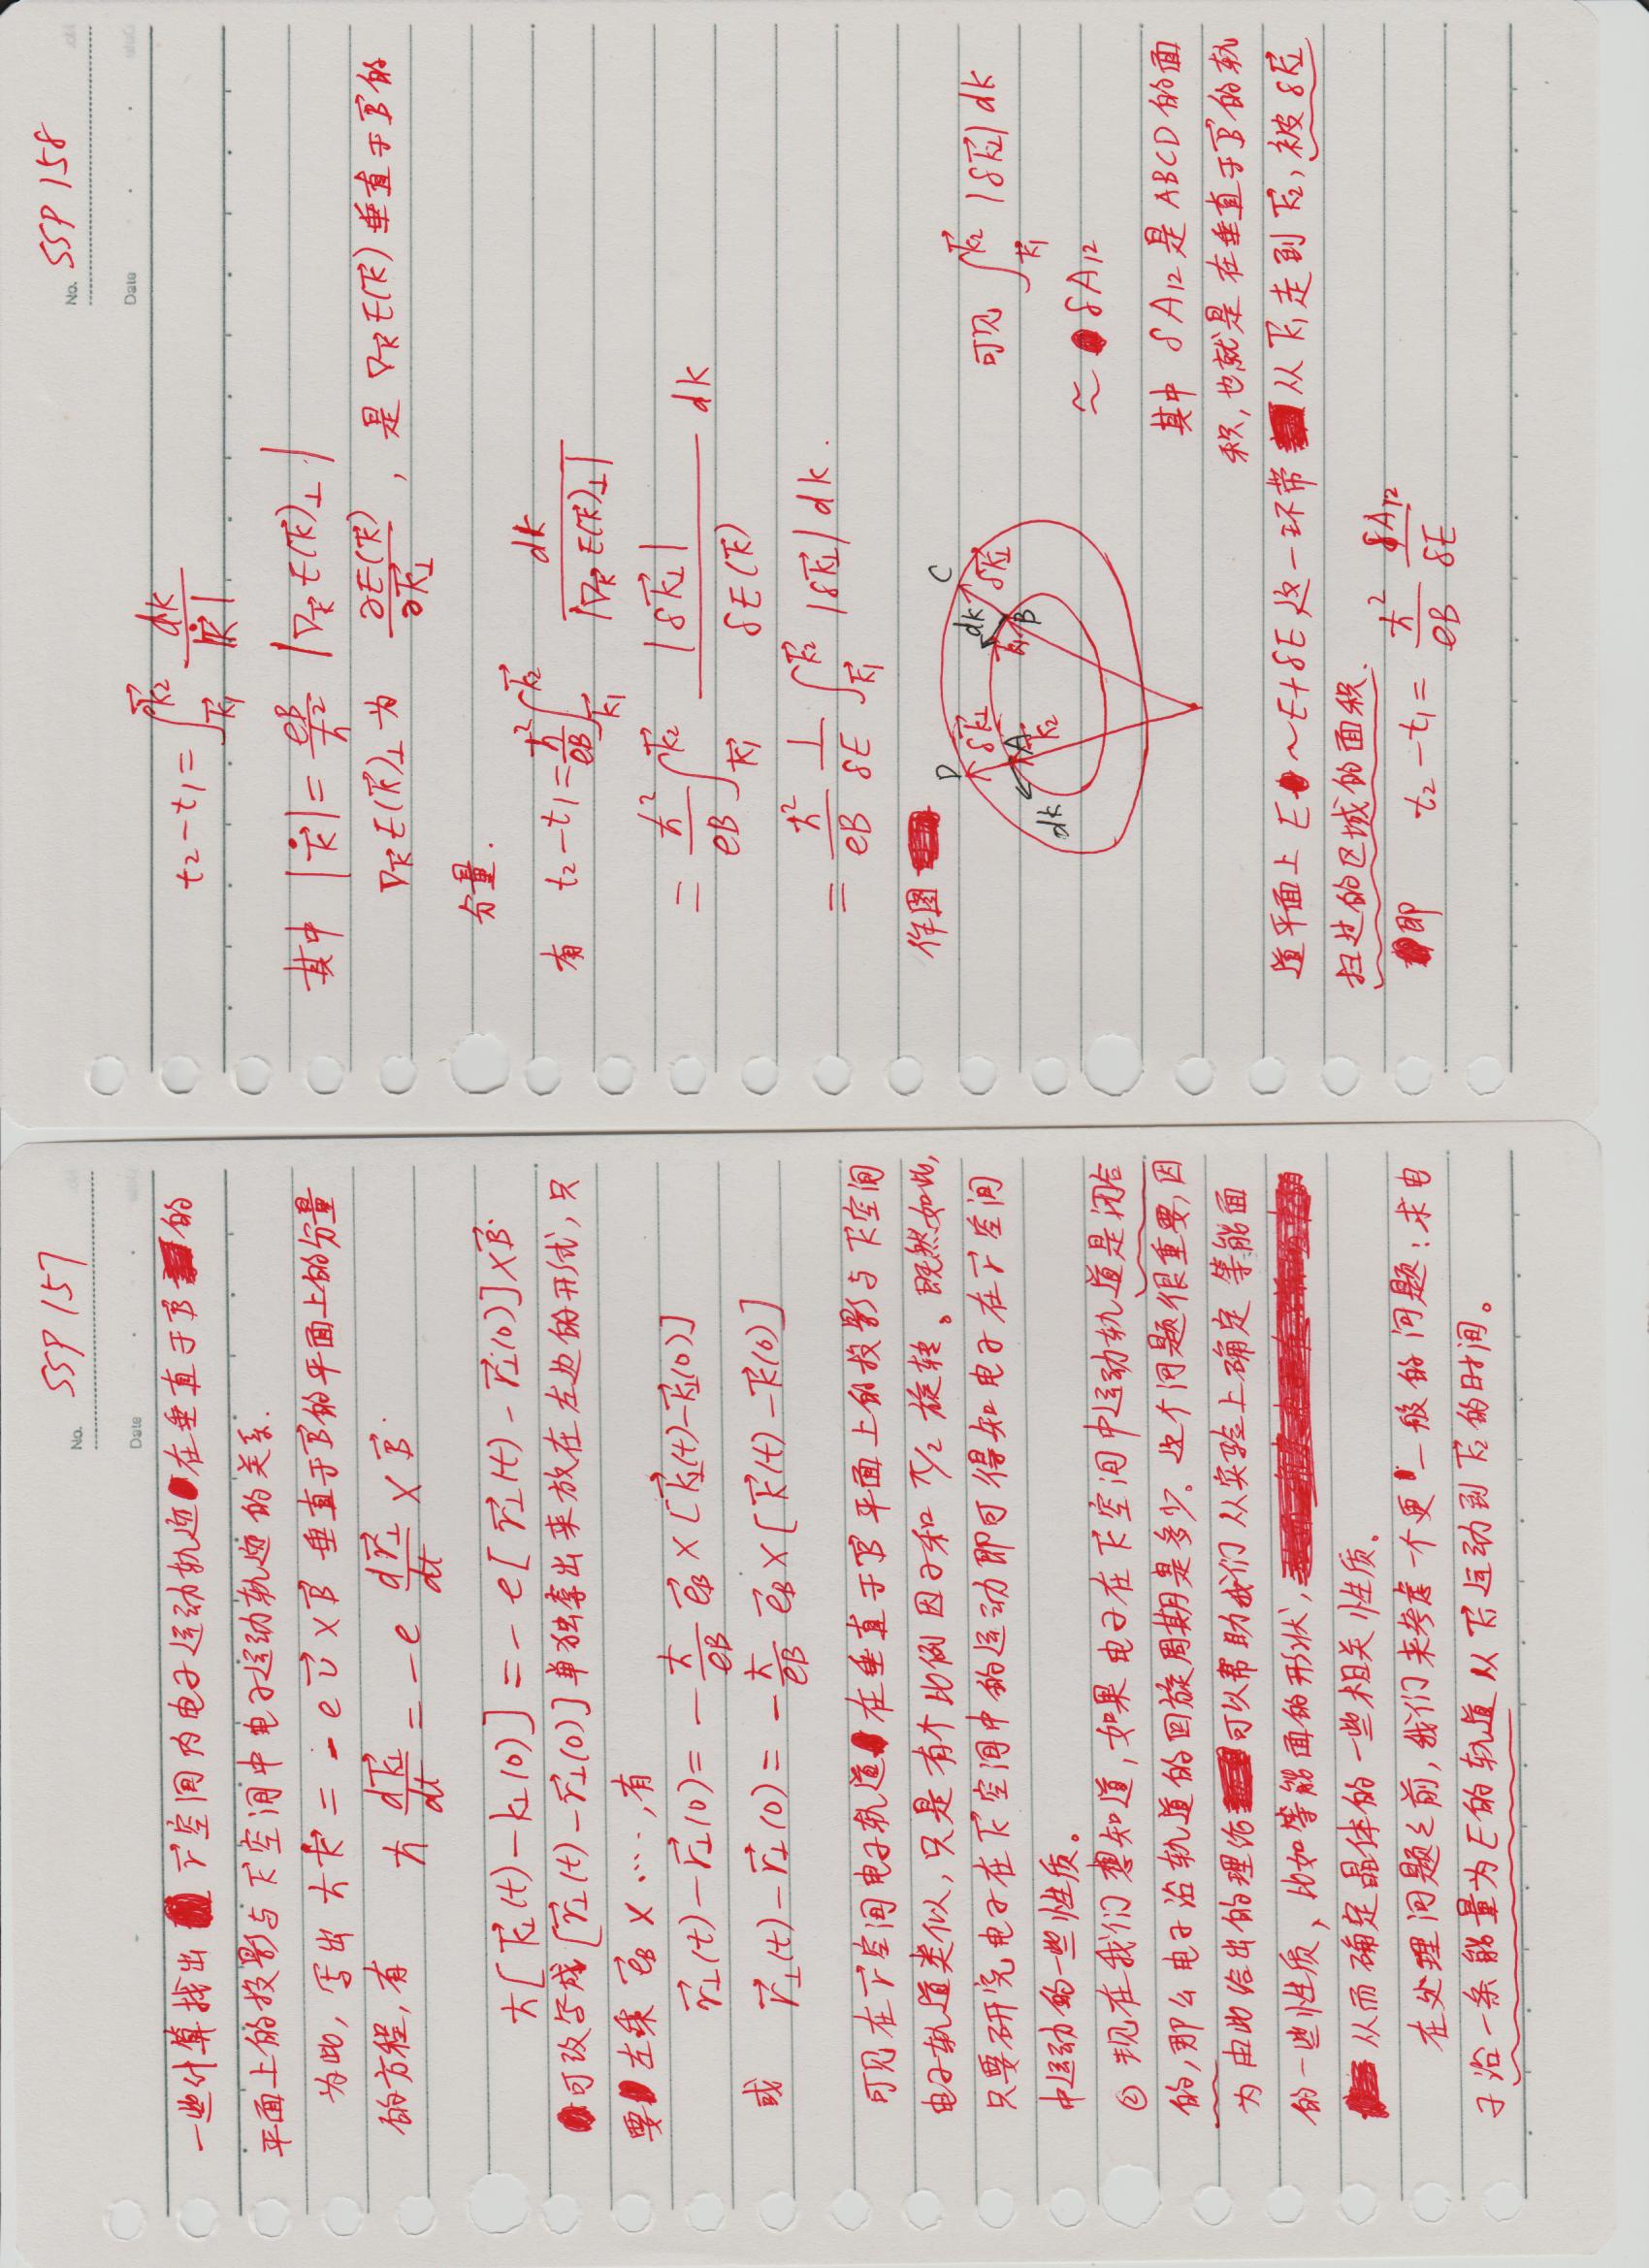 No. SSP 157
Date
一些计算找出 r⃗空间内电子运动轨迹在垂直于B⃗的
平面上的投影与k⃗空间中电子运动轨迹的关系.
为此, 写出 ħk⃗̇ = -e v⃗ × B⃗ 垂直于B⃗的平面上的分量
的方程, 有 ħ dk⃗⊥/dt = -e dr⃗⊥/dt × B⃗.
ħ[k⃗⊥(t) - k⊥(0)] = -e[r⃗⊥(t) - r⃗⊥(0)] × B⃗.
可改写成[r⃗⊥(t) - r⃗⊥(0)]单独拿出来放在左边的形式, 只
要左乘 e⃗B × ⋯, 有
r⃗⊥(t) - r⃗⊥(0) = - ħ/eB e⃗B × [k⃗⊥(t) - k⃗⊥(0)]
或 r⃗⊥(t) - r⃗⊥(0) = - ħ/eB e⃗B × [k⃗(t) - k⃗(0)]
可见在r⃗空间电子轨道在垂直于B⃗平面上的投影与k⃗空间
电子轨道类似, 只是有个比例因子和π/2旋转。既然如此,
只要研究电子在k⃗空间中的运动即可得知电子在r⃗空间
中运动的一些性质。
② 现在我们想知道, 如果电子在k⃗空间中运动轨道是闭合
的, 那么电子沿轨道的回旋周期是多少。这个问题很重要, 因
为由此给出的理论可以帮助我们从实验上确定等能面
的一些性质、比如等能面的形状,
从而确定晶体的一些相关性质。
在处理问题之前, 我们来考虑一个更一般的问题: 求电
子沿一条能量为E的轨道从k⃗1运动到k⃗2的时间。
No. SSP 158
Date
t2 - t1 = ∫_{k⃗1}^{k⃗2} dk/|k⃗̇|
其中 |k⃗̇| = eB/ħ² |∇k⃗ E(k⃗)⊥|
∇k⃗ E(k⃗)⊥ 为 ∂E(k⃗)/∂k⃗⊥, 是 ∇k⃗ E(k⃗) 垂直于B⃗的
分量.
有 t2 - t1 = ħ²/eB ∫_{k⃗1}^{k⃗2} dk/|∇k⃗ E(k⃗)⊥|
= ħ²/eB ∫_{k⃗1}^{k⃗2} |δk⃗⊥|/δE(k⃗) dk
= ħ²/eB 1/δE ∫_{k⃗1}^{k⃗2} |δk⃗⊥| dk.
作图
D δk⃗⊥ dk C δk⃗⊥
A k⃗2 k⃗1 B
dk
可见 ∫_{k⃗1}^{k⃗2} |δk⃗⊥| dk
≈ δA12
其中 δA12 是ABCD的面
积, 也就是在垂直于B⃗的轨
道平面上 E ~ E+δE 这一环带 从k⃗1走到k⃗2, 被δk⃗⊥
扫过的区域的面积.
即 t2 - t1 = ħ²/eB δA12/δE